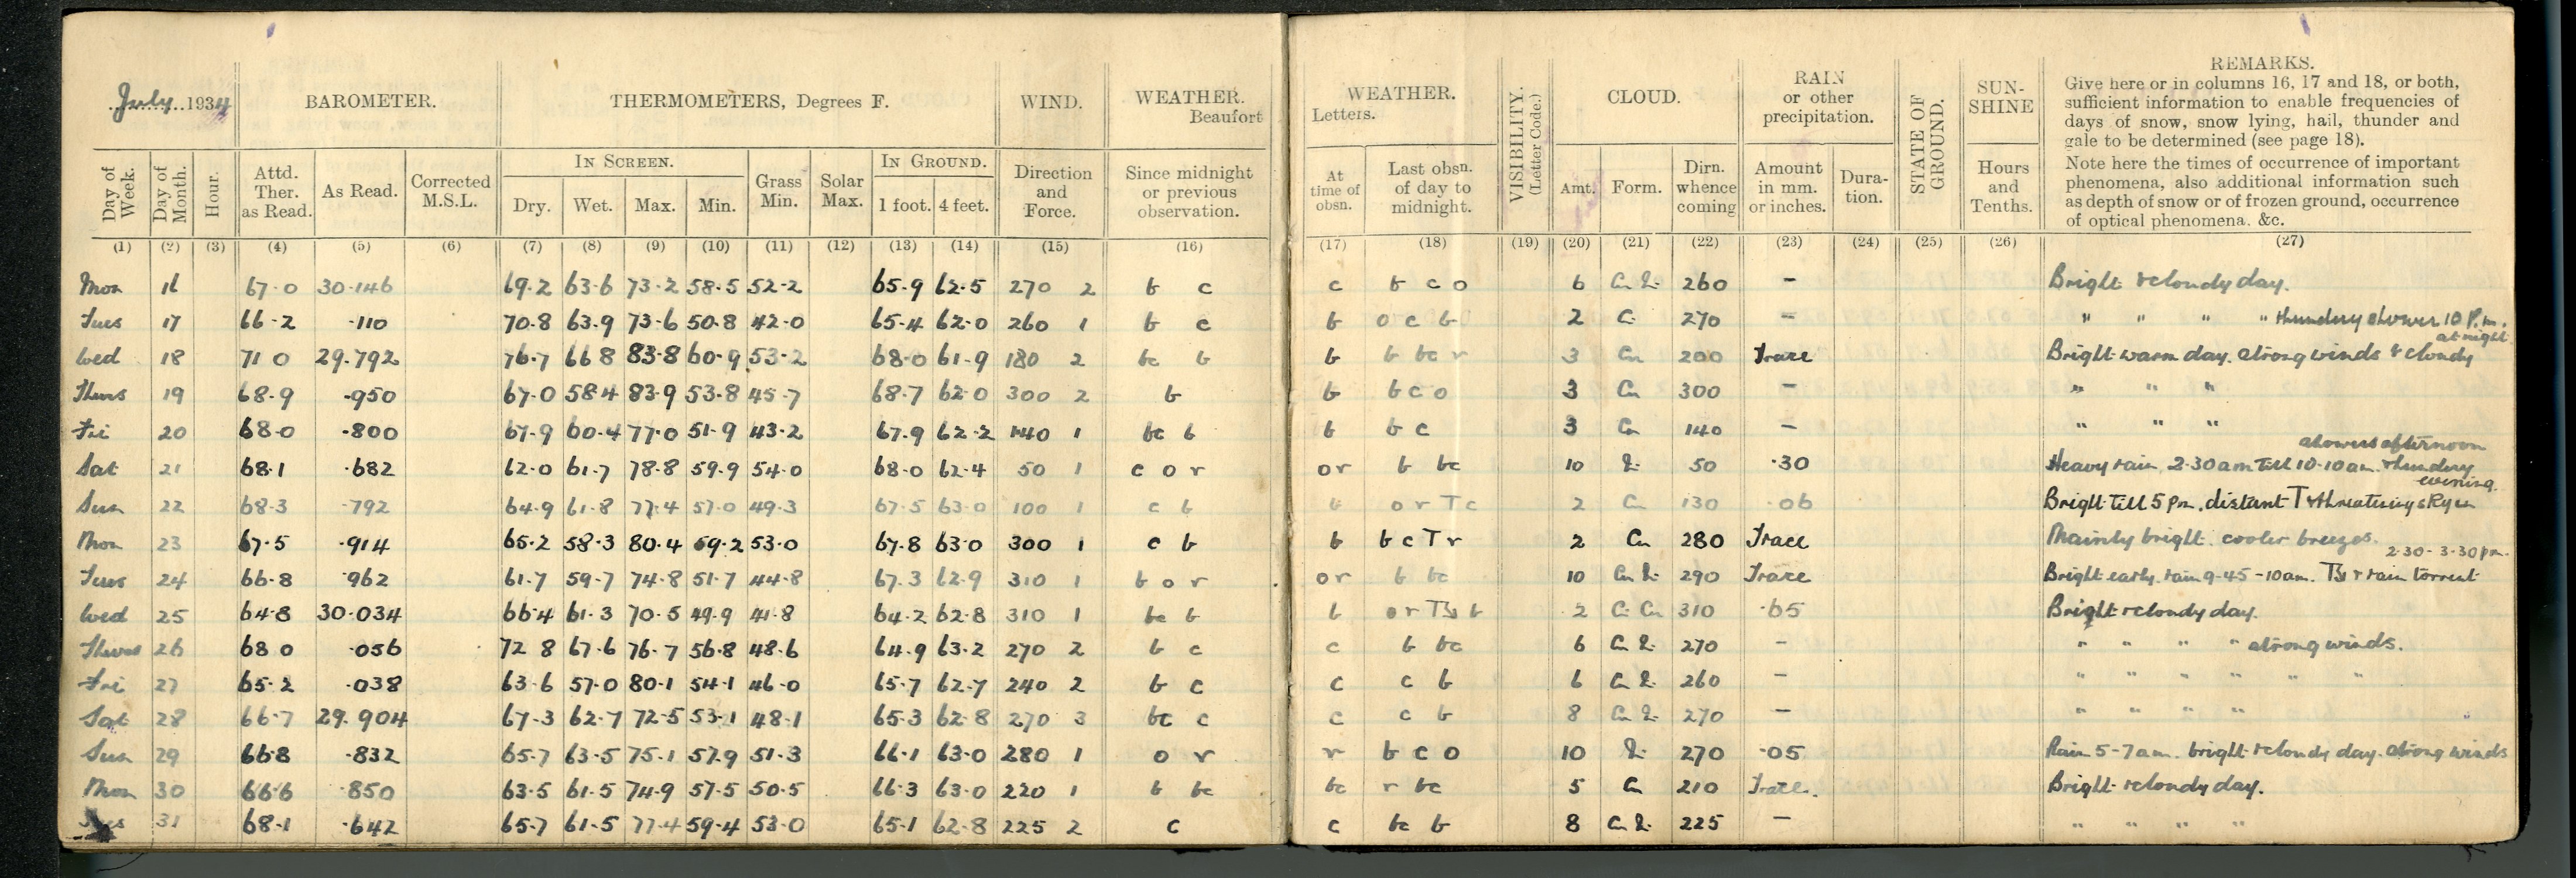 July 1934
BAROMETER.
THERMOMETERS, Degrees F.
WIND.
WEATHER.
Beaufort
Day of Week.
Day of Month.
Hour.
Attd. Ther. as Read.
As Read.
Corrected M.S.L.
IN SCREEN.
Dry. Wet. Max. Min.
Grass Min.
Solar Max.
IN GROUND.
1 foot. 4 feet.
Direction and Force.
Since midnight or previous observation.
(1) (2) (3) (4) (5) (6) (7) (8) (9) (10) (11) (12) (13) (14) (15) (16)
WEATHER.
Letters.
At time of obsn.
Last obsn. of day to midnight.
VISIBILITY.
(Letter Code.)
CLOUD.
Amt. Form.
Dirn. whence coming
RAIN
or other
precipitation.
Amount in mm. or inches.
Dura-tion.
STATE OF GROUND.
SUN-SHINE
Hours and Tenths.
REMARKS.
Give here or in columns 16, 17 and 18, or both,
sufficient information to enable frequencies of
days of snow, snow lying, hail, thunder and
gale to be determined (see page 18).
Note here the times of occurrence of important
phenomena, also additional information such
as depth of snow or of frozen ground, occurrence
of optical phenomena. &c.
(17) (18) (19) (20) (21) (22) (23) (24) (25) (26) (27)
Mon 16 67.0 30.146 69.2 63.6 73.2 58.5 52.2 65.9 62.5 270 2 b c c b c o 6 260 - Bright & cloudy day.
Tues 17 66.2 .110 70.8 63.9 73.6 50.8 42.0 65.4 62.0 260 1 b c b o c b 2 270 - " " " " thundery shower 10 P.m.
Wed 18 71 0 29.792 76.7 66 8 83.8 60.9 53.2 68.0 61.9 180 2 bc b b b bc r 3 Cu 200 Trace Bright warm day. strong winds & cloudy at night
Thurs 19 68.9 .950 67.0 58 4 83.9 53.8 45.7 68.7 62 0 300 2 b b b c o 3 Cu 300 - " " "
Fri 20 68.0 .800 67.9 60.4 77.0 51.9 43.2 67.9 62.2 140 1 bc b b b c 3 Cu 140 - " " "
Sat 21 68.1 .682 62.0 61.7 78.8 59.9 54.0 68.0 62.4 50 1 c o r or b bc 10 50 .30 Heavy rain 2.30am till 10.10am. thundery showers afternoon evening.
Sun 22 68.3 .792 64.9 61.8 77.4 57.0 49.3 67.5 63.0 100 1 c b b o r T c 2 Cu 130 .06 Bright till 5 pm, distant T & threatening sky
Mon 23 67.5 .914 65.2 58.3 80.4 59.2 53.0 67.8 63.0 300 1 c b b b c T r 2 Cu 280 Trace Mainly bright. cooler breezes.
Tues 24 66.8 .962 61.7 59.7 74.8 51.7 44.8 67.3 62.9 310 1 b o r or b bc 10 290 Trace Bright early. rain 9-45 - 10am. & rain torrent 2.30-3.30pm.
Wed 25 64.8 30.034 66.4 61.3 70.5 49.9 41.8 64.2 62.8 310 1 bc b b o r b 2 310 .65 Bright & cloudy day.
Thurs 26 68 0 .056 72 8 67.6 76.7 56.8 48.6 64.9 63.2 270 2 b c c b bc 6 270 - " " " " strong winds.
Fri 27 65.2 .038 63.6 57.0 80.1 54.1 46.0 65.7 62.7 240 2 b c c c b 6 260 - " " " " " "
Sat 28 66.7 29.904 67.3 62.7 72.5 53.1 48.1 65.3 62.8 270 3 bc c c c b 8 270 - " " " "
Sun 29 66.8 .832 65.7 63.5 75.1 57.9 51.3 66.1 63.0 280 1 o r r b c o 10 270 .05 Rain 5-7am. bright & cloudy day. strong winds
Mon 30 66.6 .850 63.5 61.5 74.9 57.5 50.5 66.3 63.0 220 1 b bc bc r bc 5 Cu 210 Trace. Bright & cloudy day.
31 68.1 .642 65.7 61.5 77.4 59.4 53.0 65.1 62.8 225 2 c c bc b 8 225 - " " " "